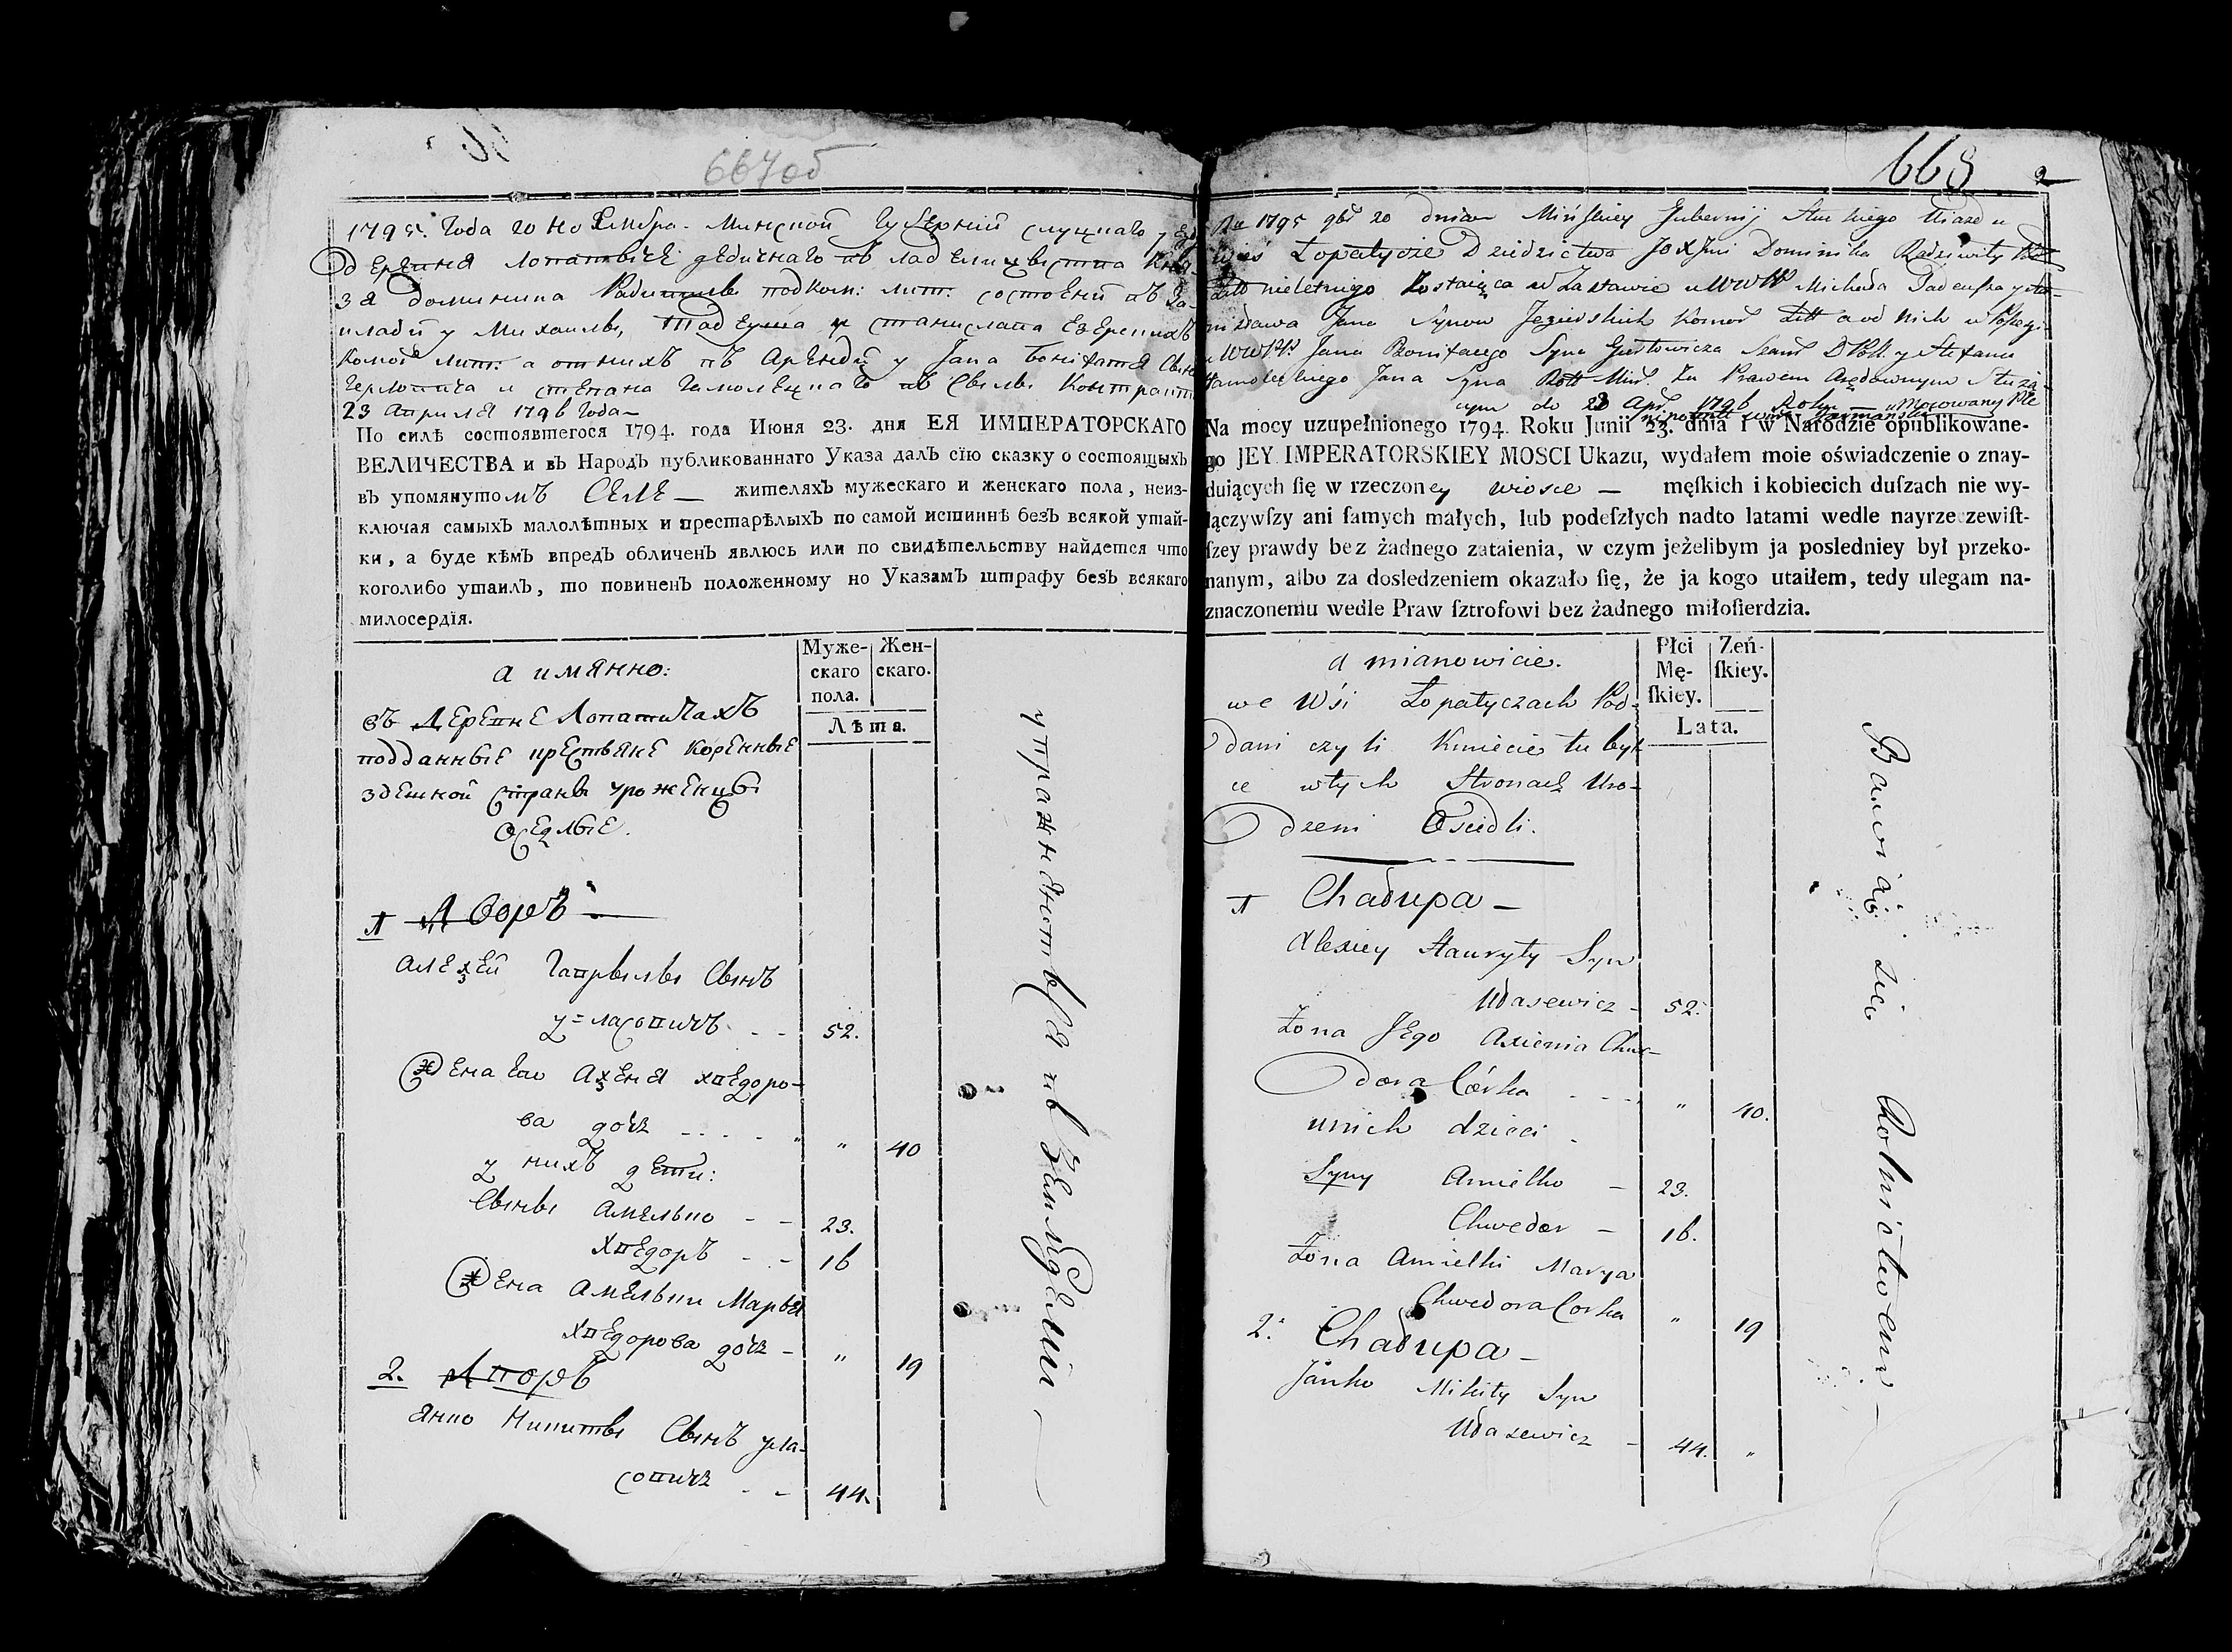 667об
1795. Года 20 Ноембра. Минской Губернии Слуцкаго
Деревня Лопатичи дедичнаго въ
Доминика подком: лит: состоений въ За
у Михаила, Тадеуша и Станислава
Комор лит: а от нихъ въ Арендй у Јана Бонифатя
и Степана Гамолецкаго Контракт
23 Априля 1796 Года
По силѣ состоявшегося 1794. года Июня 23. дня ЕЯ ИМПЕРАТОРСКАГО
ВЕЛИЧЕСТВА и въ Народъ публикованнаго Указа далъ сїю сказку о состоящыхъ
въ упомянутомъ Селе — жителяхъ мужескаго и женскаго пола, неиз-
ключая самыхъ малолѣтных и престарѣлыхъ по самой истиннѣ безъ всякой утай-
ки, а буде кѣмъ впредъ обличенъ явлюсь или по свидѣтельству найдется что
коголибо утаилъ, то повиненъ положенному но Указамъ штрафу безъ всякаго
милосердїя.
а имянно:
Муже-
скаго
пола.
Жен-
скаго.
Лѣта.
въ Деревне Лопатичахъ
подданные крестьяне коренные
здешной страны уроженцы
оседлые.
1 Дворъ —
Алексей Гаврылы Сынъ
у=ласовичъ - - 52.
Жена Его Аксеня Хведоро-
ва дочь - - - - " 40
у нихъ дети:
Сыны Амелько - - 23.
Хведоръ - - 16
Жена Амельки Марья
Хведорова дочь - " 19
2. Дворъ
Янко Никиты Сынъ ула-
совичь - - 44.
упражняються въ земледелии —
668 2
Ru 1795 9br 20 dnia Mińskiey Gubernij Słuckiego Uiazdu
wieś Łopatycze Dziedzictwa JOXJmi Dominika Radziwiły
Litto nieletniego Zostaiąca w Zastawie u WWW Michała Tadeusza y Sta-
nisława Jana Synow Jezierskich Komor Litt a od Nich w
u WWPP Jana Bonifacego Syna y Stefana
Hamolickiego Jana Syna Rott Miń. Za Prawem Arędownym Służą-
cym do 23 Apr. 1796 Roku — Mocowany Ple
Na mocy uzupełnionego 1794. Roku Junii 23. dnia i w Narodzie opublikowane-
go JEY IMPERATORSKIEY MOSCI Ukazu, wydałem moie oświadczenie o znay-
duiących ſię w rzeczoney wiosce — męſkich i kobiecich duſzach nie wy-
łączywſzy ani ſamych małych, lub podeſzłych nadto latami wedle nayrzeczewiſt-
ſzey prawdy bez żadnego zataienia, w czym jeżelibym ja posledniey był przeko-
nanym, albo za dosledzeniem okazało ſię, że ja kogo utaiłem, tedy ulegam na-
znaczonemu wedle Praw ſztrofowi bez żadnego miłoſierdzia.
a mianowicie.
Płci
Mę-
ſkiey.
Zeń-
ſkiey.
Lata.
we Wśi Łopatyczach Pod-
dani czyli Kmiecie tu byt
w tych Stronach Uro-
dzeni Osiedli.
1 Chałupa —
Alexiey Hauryły Syn
Ułasewicz - 52.
Żona Jego Axienia Chwe-
dora Córka - - - " 40.
u nich dzieci -
Syny Amielko - 23.
Chwedor - 16.
Żona Amielki Marya
Chwedora Corka " 19
2. Chałupa —
Janko Mikity Syn
Ułasewicz - 44. "
Bawią się Rolnictwem —